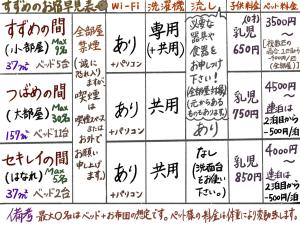 すずめのお宿早見表
Wi-Fi
洗濯機
流し
子供料金
ペット料金
すずめの間
(小部屋) Max 5名
37㎡ ベッド5台
全部屋禁煙
(誠に恐れ入りますが、喫煙は喫煙スペースまたはお外でお願い申し上げます。)
あり
+パソコン
専用
(+共用)
必要な器具や食器をお申しつけ下さい!
(全部屋対象)
あり
(0才)
乳児
650円
3500円〜
つばめの間
(大部屋) Max 30名
157㎡ ベッド11台
あり
+パソコン
共用
乳児
750円
4500円〜
連泊は
2泊目から
-500円/泊
セキレイの間
(はなれ) Max 9名
37㎡ ベッド2台
あり
+パソコン
共用
なし
(洗面台をお使い下さい。)
乳児
850円
4000円〜
連泊は
2泊目から
-500円/泊
備考 最大〇名はベッド+お布団の想定です。ペット様の料金は体重により変動致します。